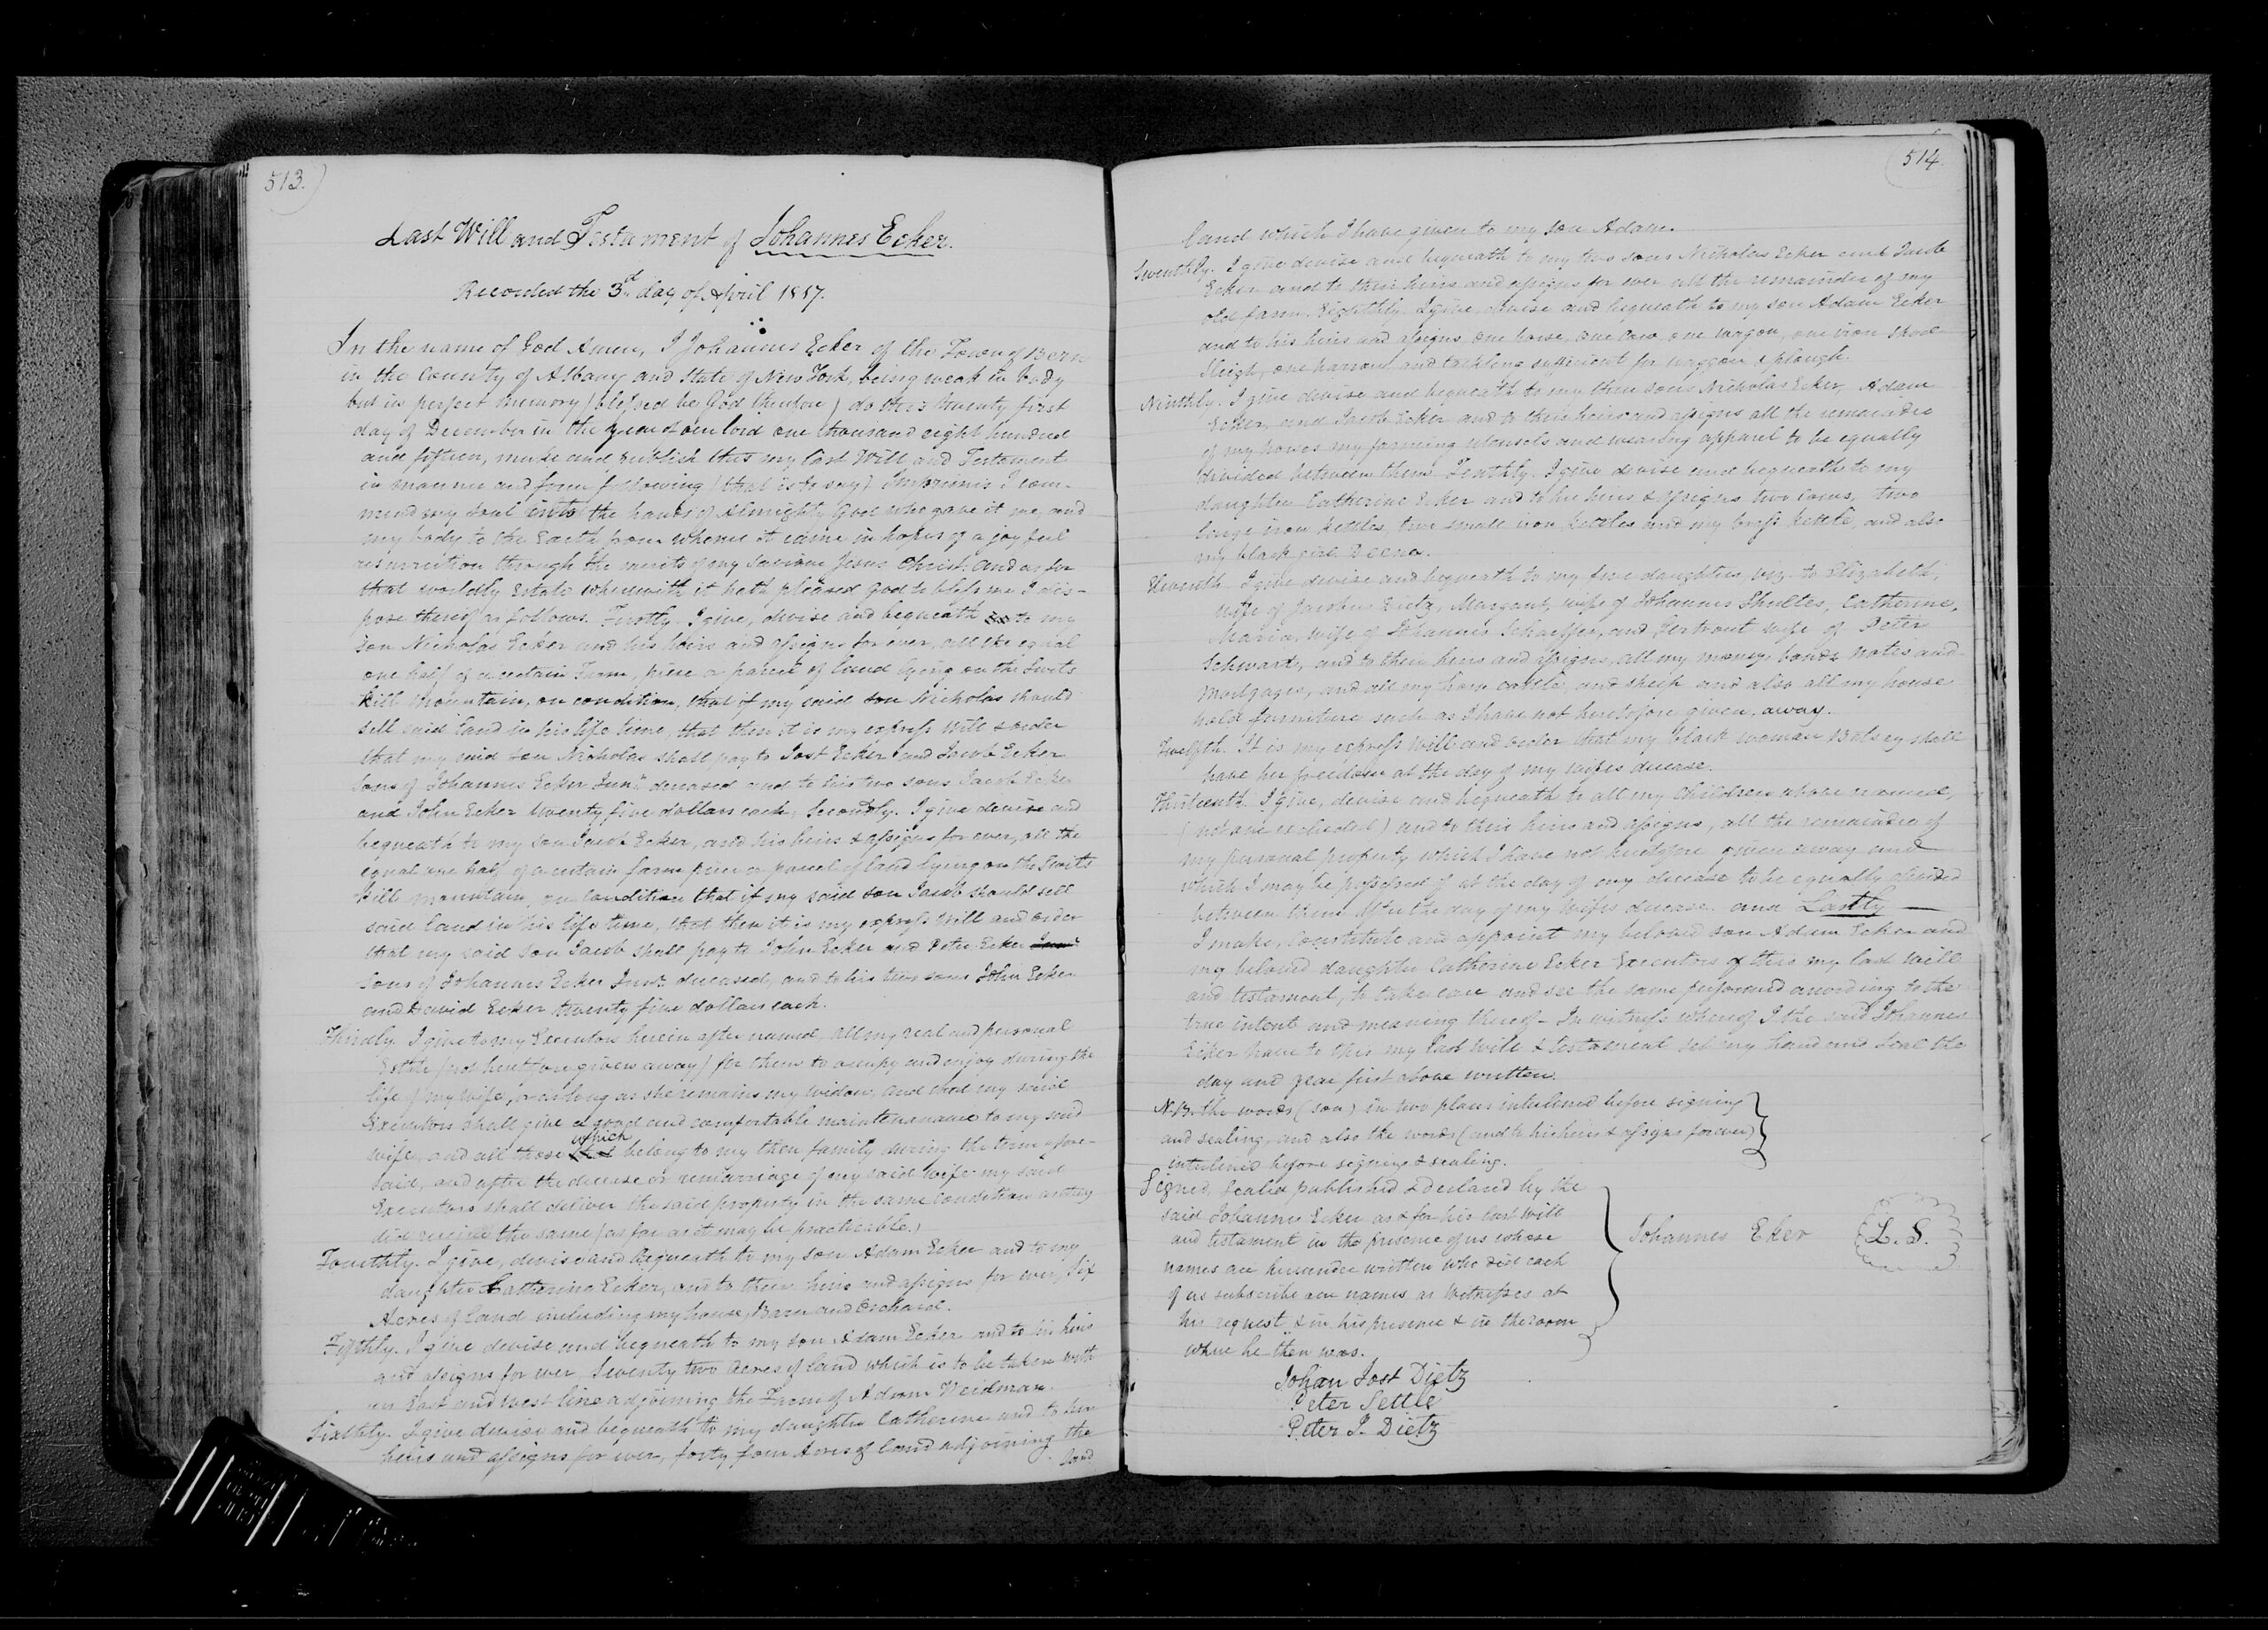 513.
Last Will and Testament of Johannes Ecker.
Recorded the 3d day of April 1817.
In the name of God Amen, I Johannes Ecker of the Town of Bern
in the County of Albany and State of New York, being weak in body
but in perfect memory (blessed be God therefore) do this twenty first
day of December in the year of our lord one thousand eight hundred
and fifteen, make and publish this my last Will and Testament
in manner and form following (that is to say) Imprimis I com-
mend my soul into the hands of Almighty God who gave it me, and
my body to the Earth from whence it came in hopes of a joyful
resurrection through the merits of my Saviour Jesus Christ, and as for
that worldly Estate wherewith it hath pleased God to bless me I dis-
pose thereof as follows. Firstly I give, devise and bequeath to my
son Nicholas Ecker and his heirs and assigns for ever, all the equal
one half of a certain Farm, piece or parcel of land lying on the Switz
kill mountain, on condition, that if my said son Nicholas should
sell said land in his life time, that then it is my express will & order
that my said son Nicholas shall pay to Jost Ecker and Jacob Ecker
sons of Johannes Ecker Junr. deceased and to his two sons Jacob Ecker
and John Ecker twenty five dollars each, Secondly. I give devise and
bequeath to my son Jacob Ecker, and his heirs & assigns for ever, all the
equal one half of a certain farm piece or parcel of land lying on the Switz
kill mountain, on condition that if my said son Jacob should sell
said land in his life time, that then it is my express Will and order
that my said son Jacob shall pay to John Ecker and Peter Ecker
sons of Johannes Ecker Junr. deceased, and to his two sons John Ecker
and David Ecker twenty five dollars each.
Thirdly. I give to my Executors herein after named, all my real and personal
Estate (not heretofore given away) for them to occupy and enjoy during the
life of my wife, or as long as she remains my widow, and that my said
Executors shall give a good and comfortable maintenance to my said
wife, and all those which belong to my then family during the term afore-
said, and after the decease or remarriage of my said wife my said
Executors shall deliver the said property in the same condition as they
did receive the same (as far as it may be practicable.)
Fourthly. I give, devise and bequeath to my son Adam Ecker and to my
daughter Catherine Ecker, and to their heirs and assigns for ever, Six
Acres of land including my house, Barn and Orchard.
Fifthly. I give devise and bequeath to my son Adam Ecker and to his heirs
and assigns for ever, Seventy two Acres of land which is to be taken with
an East and West line adjoining the Farm of Adam Weidman.
Sixthly. I give devise and bequeath to my daughter Catherine and to her
heirs and assigns for ever, forty four Acres of land adjoining the
land
514
land which I have given to my son Adam.
Seventhly. I give devise and bequeath to my two sons Nicholas Ecker and Jacob
Ecker and to their heirs and assigns for ever all the remainder of my
old farm. Eighthly. I give, devise and bequeath to my son Adam Ecker
and to his heirs and assigns, one horse, one Cow, one wagon, one iron shod
Sleigh, one harrow and tackling sufficient for waggon & plough.
Ninthly. I give devise and bequeath to my three sons Nicholas Ecker, Adam
Ecker, and Jacob Ecker and to their heirs and assigns all the remainder
of my horses my farming utensels and wearing apparel to be equally
divided between them. Tenthly. I give devise and bequeath to my
daughter Catherine Ecker and to her heirs & assigns two Cows, two
large iron kettles, two small iron kettles and my brass kettle, and also
my black girl Deena.
Eleventh. I give devise and bequeath to my five daughters, viz. to Elizabeth,
wife of Jacobus Dietz, Margaret, wife of Johannes Shultes, Catherine,
Maria, wife of Johannes Schaeffer, and Gertraut wife of Peter
Schwart, and to their heirs and assigns, all my money, bonds notes and
Mortgages, and all my horn cattle, and sheep and also all my house
hold furniture such as I have not heretofore given away.
Twelfth. It is my express Will and Order that my black woman Betsey shall
have her freedom at the day of my wifes decease.
Thirteenth. I give, devise and bequeath to all my Children above named,
(not one excluded) and to their heirs and assigns, all the remainder of
my personal property which I have not heretofore given away and
which I may be possessed of at the day of my decease to be equally divided
between them after the day of my wifes decease. and Lastly —
I make, constitute and appoint my beloved son Adam Ecker and
my beloved daughter Catherine Ecker Executors of this my last will
and testament, to take care and see the same performed according to the
true intent and meaning thereof – In witness whereof I the said Johannes
Ecker have to this my last will & testament set my hand and Seal the
day and year first above written.
N.B. the words (son) in two places interlined before signing
and sealing, and also the words (and to his heirs & assigns forever)
interlined before signing & sealing.
Signed, Sealed published & declared by the
said Johannes Ecker as & for his last will
and testament in the presence of us whose
names are hereunder written who did each
of us subscribe our names as Witnesses at
his request & in his presence & in the room
where he then was.
Johannes Eker L.S.
Johan Jost Dietz
Peter Settle
Peter J. Dietz